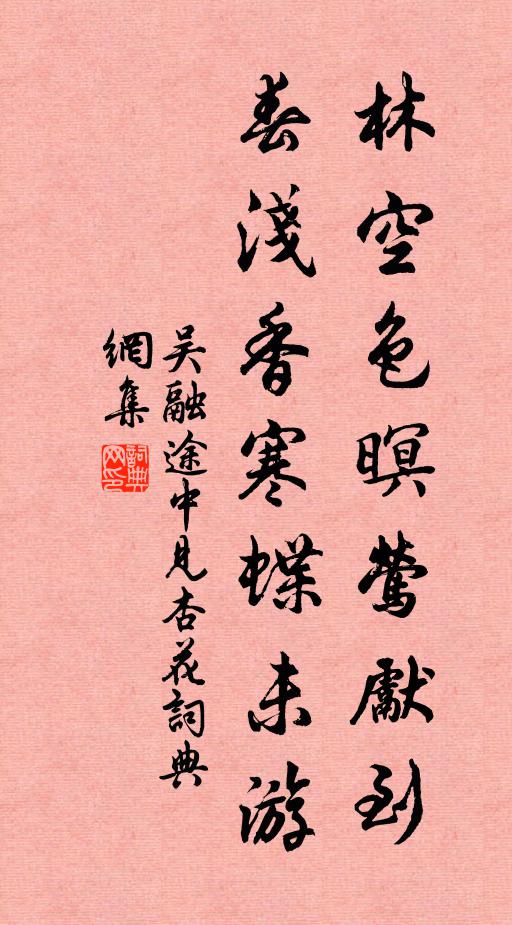 林空色暝鶯獻到
春淺香寒蝶未游
吴融途中見杏花詞典
網集
詞典
网印